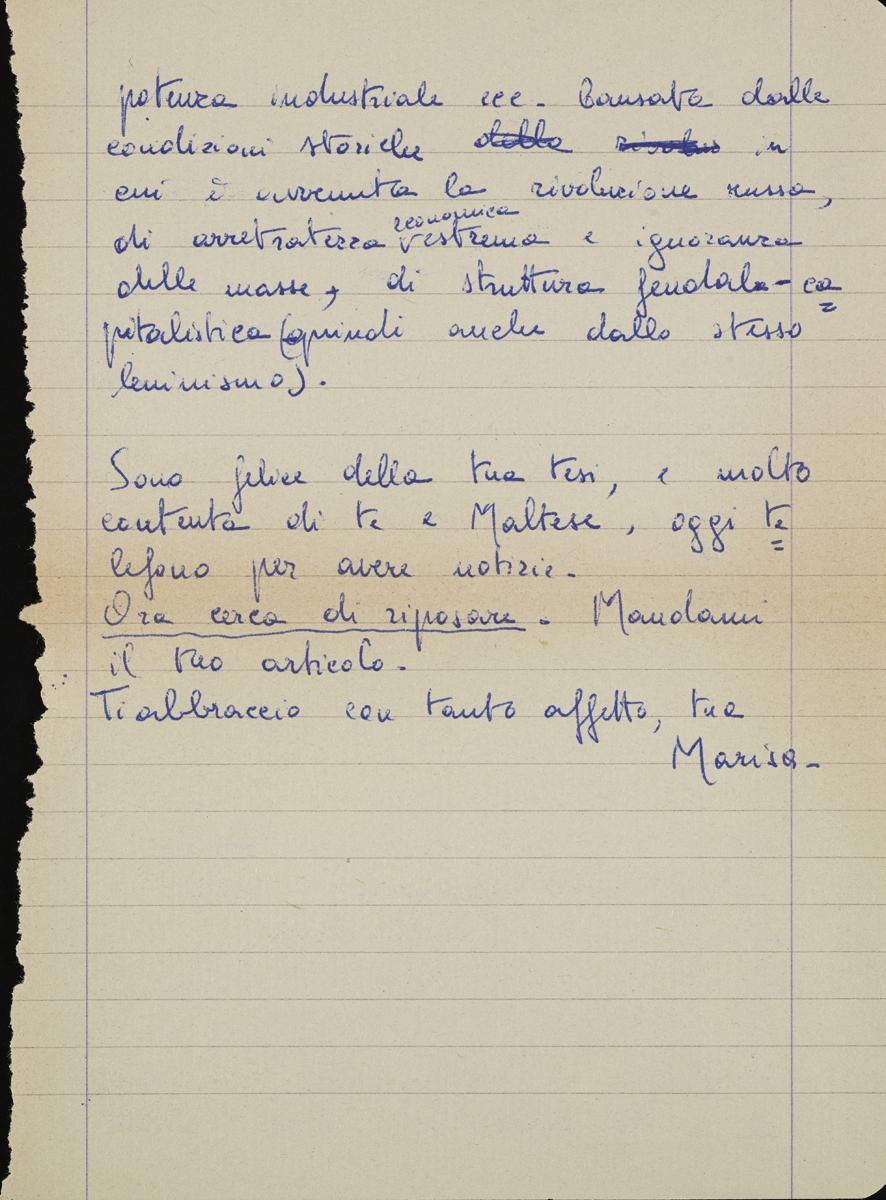 potenza industriale ecc. Causata dalle
condizioni storiche della rivoluz in
cui è avvenuta la rivoluzione russa,
di arretratezza economica estrema e ignoranza
delle masse, di struttura feudale-ca
pitalistica (quindi anche dallo stesso
leninismo).
Sono felice della tua tesi, e molto
contenta di te e Maltese, oggi te
lefono per avere notizie.
Ora cerca di riposare. Mandami
il tuo articolo.
Ti abbraccio con tanto affetto, tua
Marisa-